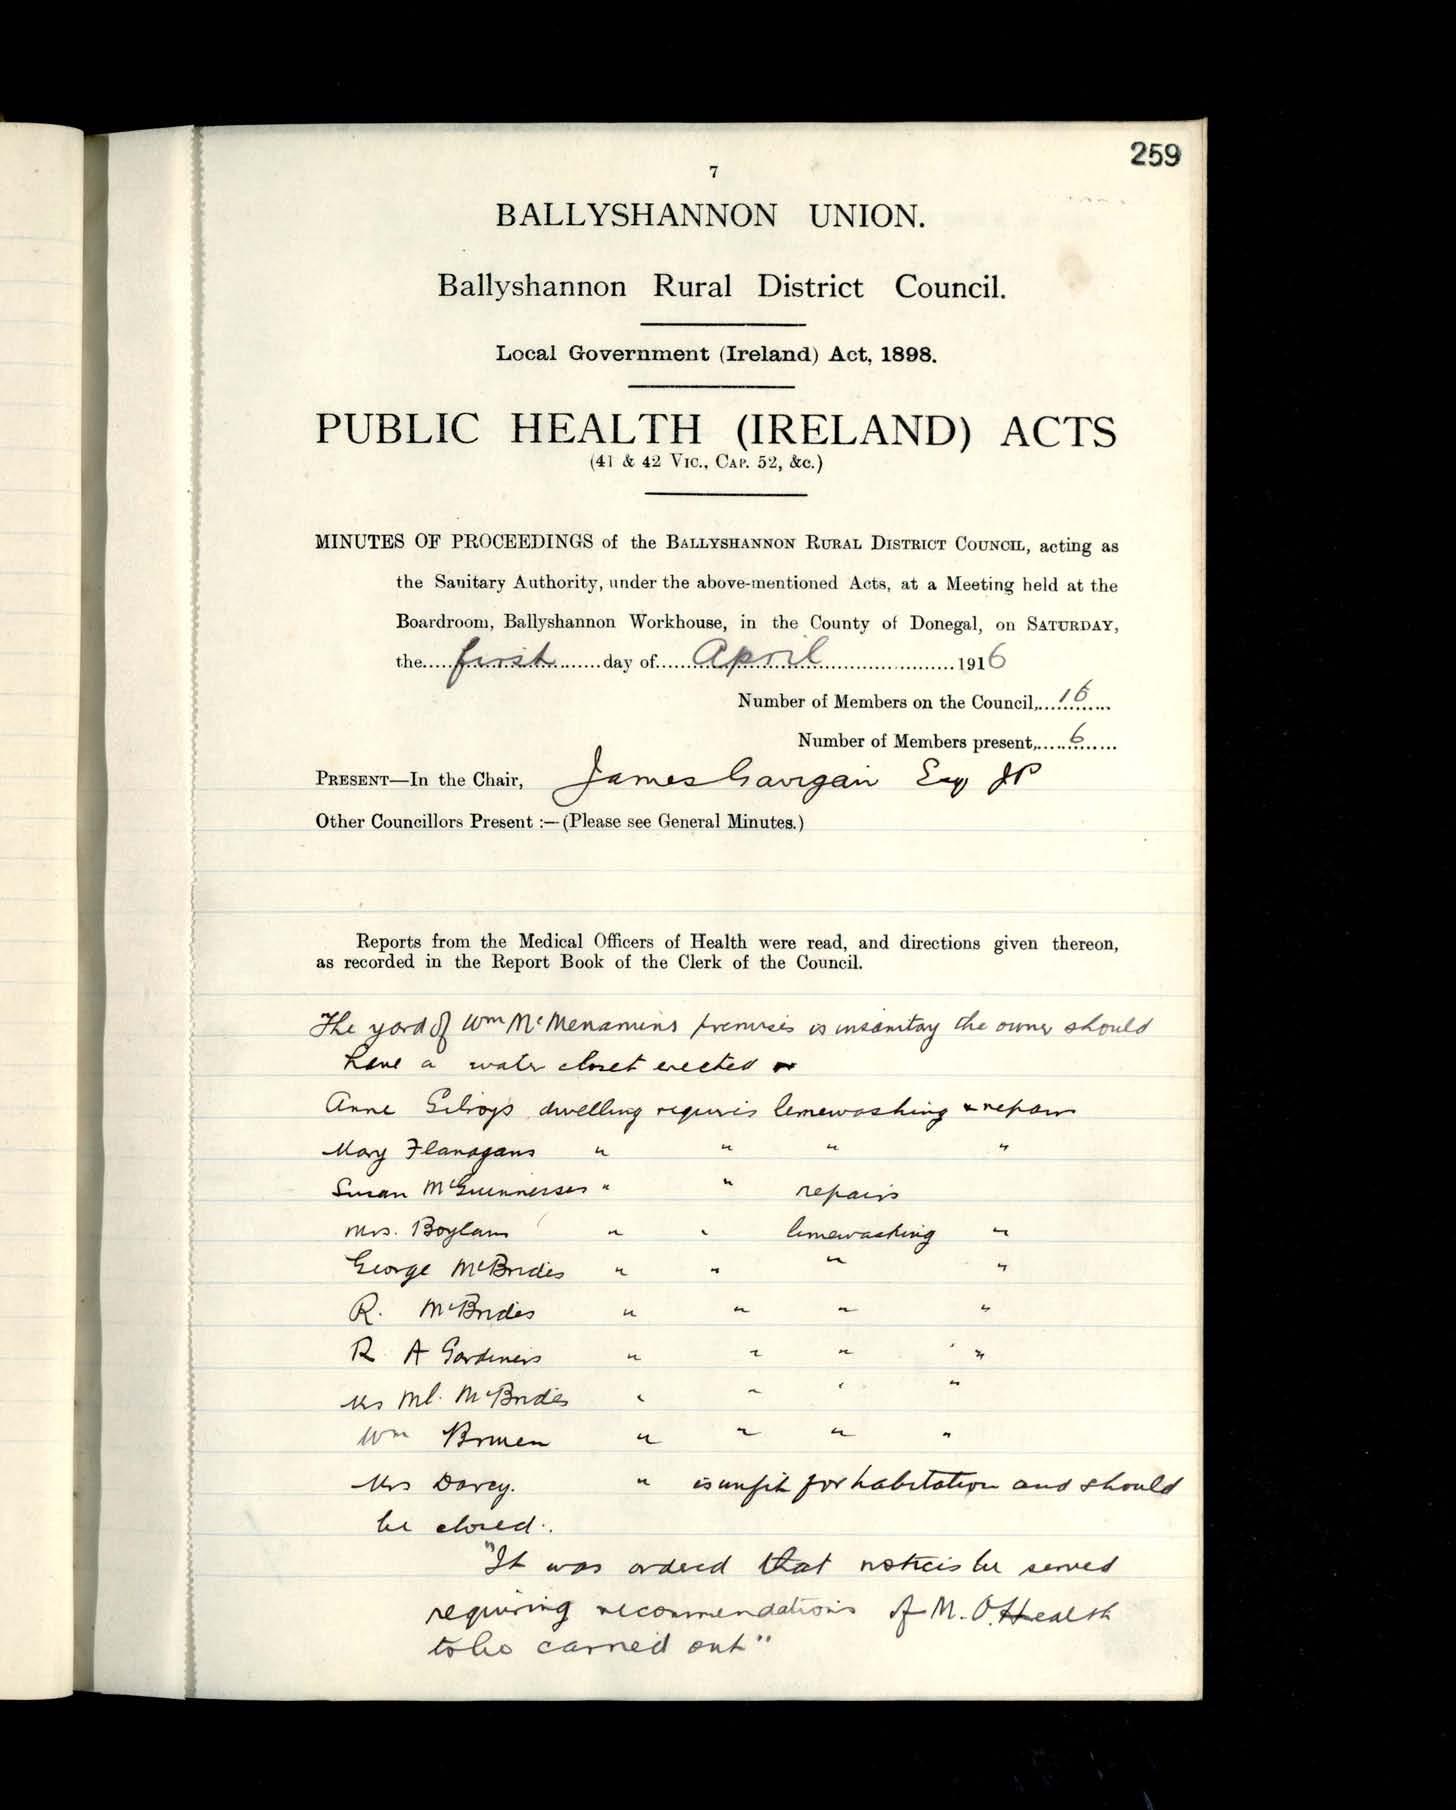 259
7
BALLYSHANNON UNION.
Ballyshannon Rural District Council.
Local Government (Ireland) Act, 1898.
PUBLIC HEALTH (IRELAND) ACTS
(41 & 42 VIC., CAP. 52, &c.)
MINUTES OF PROCEEDINGS of the BALLYSHANNON RURAL DISTRICT COUNCIL, acting as
the Sanitary Authority, under the above-mentioned Acts, at a Meeting held at the
Boardroom, Ballyshannon Workhouse, in the County of Donegal, on SATURDAY,
the first day of April 1916
Number of Members on the Council, 16
Number of Members present, 6
PRESENT—In the Chair, James Gavigan Esq JP
Other Councillors Present :—(Please see General Minutes.)
Reports from the Medical Officers of Health were read, and directions given thereon,
as recorded in the Report Book of the Clerk of the Council.
The yard of Wm McMenamins premises is insanitay the owner should
have a water closet erected
Anne Gilroys dwelling requires limewashing & repairs
Mary Flanagans " " " "
Susan McGuinnesses " " repairs
Mrs. Boylans " " limewashing "
George McBrides " " " "
R. McBrides " " " "
R A Gardiners " " " "
Mrs Ml. McBrides " " " "
Wm " " " "
Mrs Darcy. " is unfit for habitation and should
be closed.
"It was ordered that notices be served
requiring recommendations of M. O. Health
to be carried out"